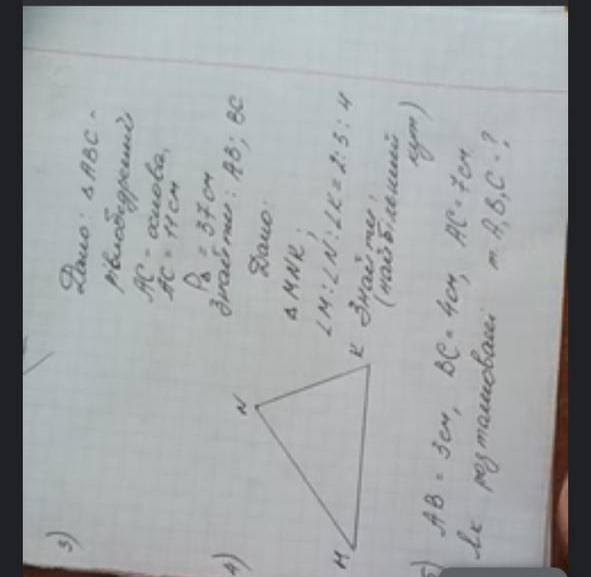 3) Дано: △ABC -
рівнобедрений
AC - основа,
AC = 11 см
P△ = 37 см
Знайти: AB; BC
4) Дано:
△MNK;
∠M:∠N:∠K = 2:3:4
Знайти:
(найбільший
кут)
N
K
M
5) AB = 3 см, BC = 4 см, AC = 7 см
Як розташовані т. A, B, C - ?